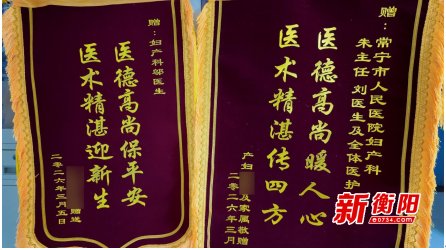 赠：妇产科邬医生
医德高尚保平安
医术精湛迎新生
赠送
二零二六年三月五日
赠：常宁市人民医院妇产科
朱主任 刘医生及全体医护
医德高尚暖人心
医术精湛传四方
产妇 及家属敬赠
二零二六年三月
新衡阳
e0734.com